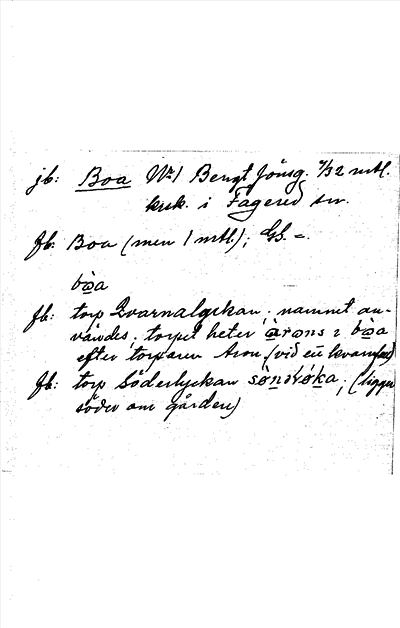 jb: Boa No 1 Bengt Jönsg. 7/32 mtl.
krsk. i Fagered sn.
fb: Boa (men 1 mtl.); GS. =.
bòa
fb: torp Qvarnalyckan; namnet an-
vändes; torpet heter àrons i bòa
efter torparen Aron (vid en kvarnfors)
fb: torp Söderlyckan sø̀ndrøka; (ligger
söder om gården)